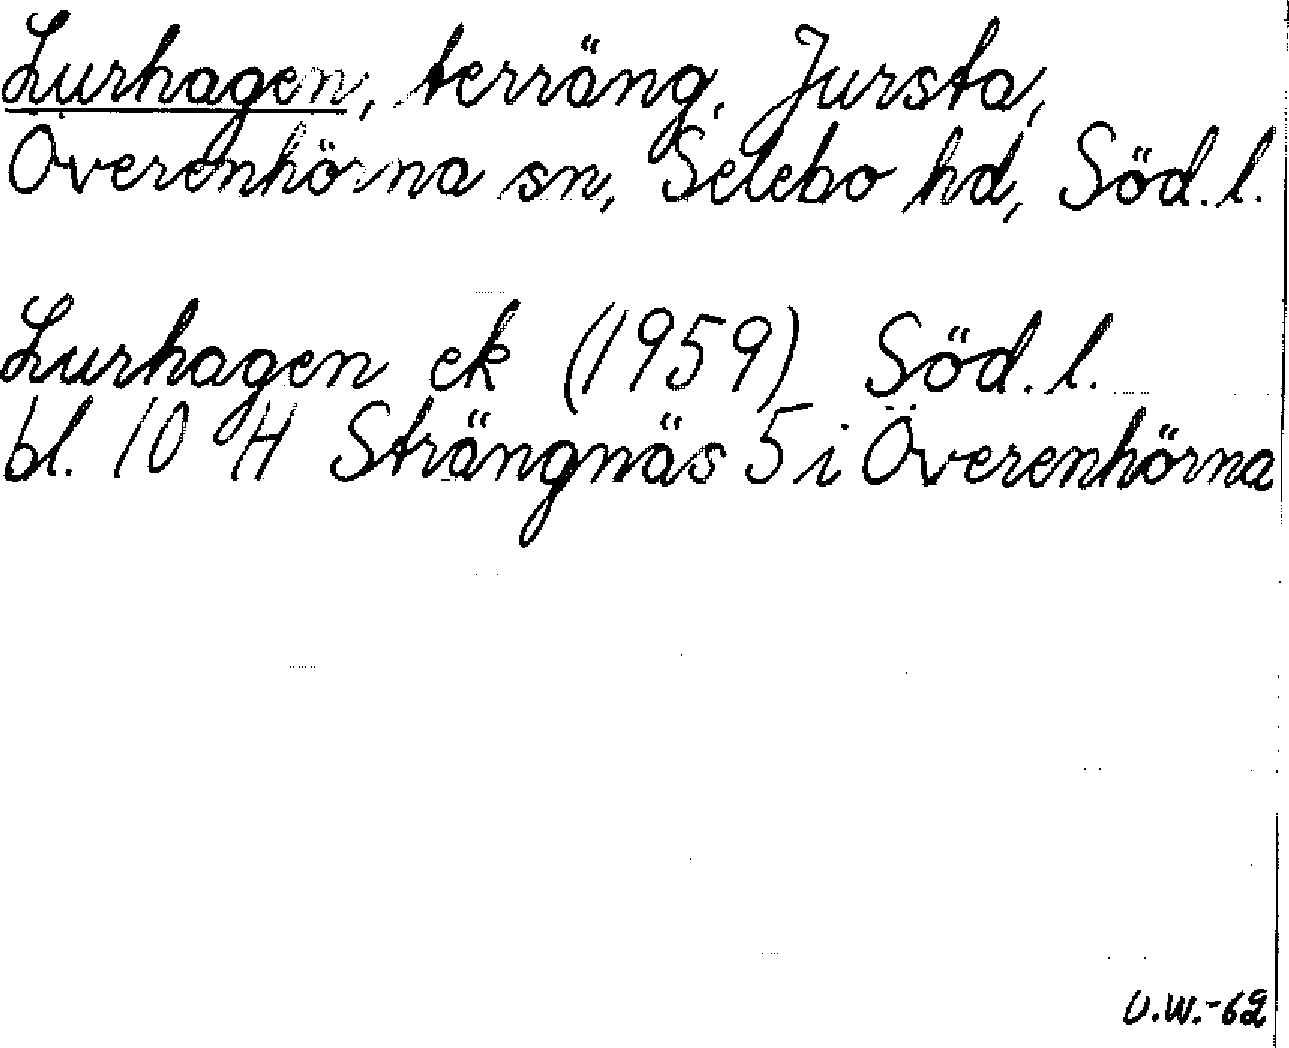 Lurhagen, terräng, Jursta,
Överenhörna sn, Selebo hd, Söd. l.
Lurhagen ek (1959) Söd. l.
bl. 10 H Strängnäs 5 i Överenhörna
U.W.-62